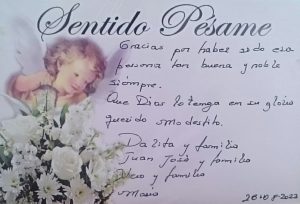 Sentido Pésame
Gracias por haber sido esa
persona tan buena y noble
siempre.
Que Dios lo tenga en su gloria
querido modestito.
Dalita y familia
Juan José y familia
y familia
Mario